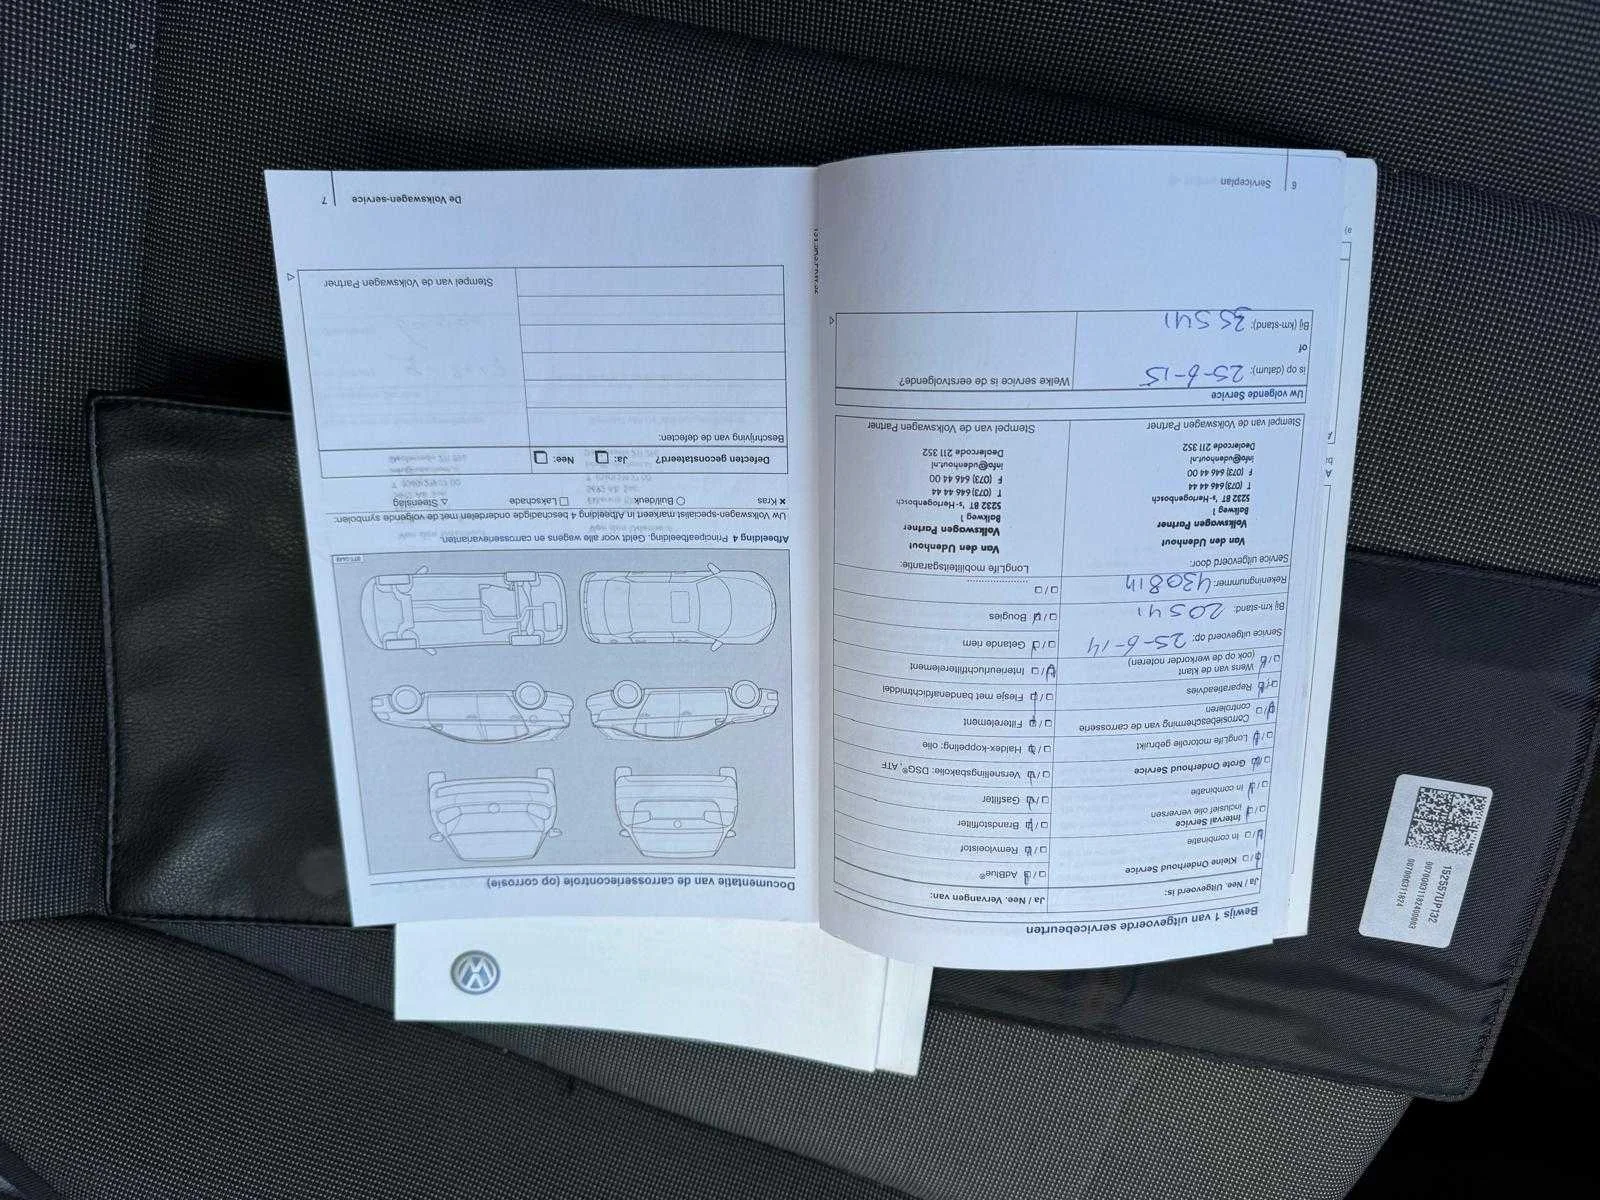 Bewijs 1 van uitgevoerde servicebeurten
Ja / Nee. Uitgevoerd is:
Kleine Onderhoud Service
In combinatie
Interval Service
inclusief olie verversen
In combinatie
Grote Onderhoud Service
LongLife motorolie gebruikt
Corrosiebescherming van de carrosserie
controleren
Reparatieadvies
Wens van de klant
(ook op de werkorder noteren)
Service uitgevoerd op: 25-6-14
Bij km-stand: 20541
Rekeningnummer:
Service uitgevoerd door:
Van den Udenhout
Volkswagen Partner
Balkweg 1
5232 BT 's-Hertogenbosch
T (073) 646 44 44
F (073) 646 44 00
info@udenhout.nl
Dealercode 211 352
Stempel van de Volkswagen Partner
Ja / Nee. Vervangen van:
AdBlue®
Remvloeistof
Brandstoffilter
Gasfilter
Versnellingsbakolie: DSG®, ATF
Haldex-koppeling: olie
Filterelement
Flesje met bandenafdichtmiddel
Interieurluchtfilterelement
Getande riem
Bougies
LongLife mobiliteitsgarantie:
Van den Udenhout
Volkswagen Partner
Balkweg 1
5232 BT 's-Hertogenbosch
T (073) 646 44 44
F (073) 646 44 00
info@udenhout.nl
Dealercode 211 352
Stempel van de Volkswagen Partner
Uw volgende Service
is op (datum): 25-6-15
of
Bij (km-stand): 35541
Welke service is de eerstvolgende?
6 Serviceplan
Documentatie van de carrosseriecontrole (op corrosie)
Afbeelding 4 Principeafbeelding. Geldt voor alle wagens en carrosserievarianten.
Uw Volkswagen-specialist markeert in Afbeelding 4 beschadigde onderdelen met de volgende symbolen:
× Kras ○ Buil/deuk □ Lakschade △ Steenslag
Defecten geconstateerd? Ja: Nee:
Beschrijving van de defecten:
Stempel van de Volkswagen Partner
De Volkswagen-service 7
152557UP132